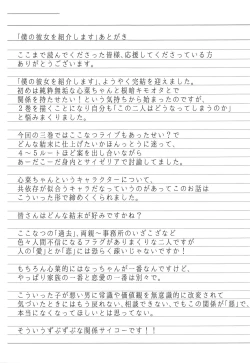 「僕の彼女を紹介します」あとがき
ここまで読んでくださった皆様、応援してくださっている方
ありがとうございます。
「僕の彼女を紹介します」、ようやく完結を迎えました。
初めは純粋無垢な心菜ちゃんと根暗キモオタとで
関係を持たせたい!という気持ちから始まったのですが、
2巻を描くことになり自分も「この二人はどうなってしまうのか」
と悩みまくりました。
今回の三巻ではここなつライブもあったせい?で
どんな結末に仕上げたいかほんっとうに迷って、
4〜5ルートほど案を出し合いながら
あーだこーだ身内とサイゼリアで討論してました。
心菜ちゃんというキャラクターについて、
共依存が似合うキャラだなっていうのがあってこのお話は
こういった形で締めくくられました。
皆さんはどんな結末が好みですかね?
ここなつの「過去」、両親〜事務所のいざこざなど
色々人間不信になるフラグがありまくりな二人ですが
人の「愛」とか「恋」には恐らく疎いじゃないですか!
もちろん心菜的にはなっちゃんが一番なんですけど、
やっぱり家族の一番と恋愛の一番は別々で。
こういった子が想い男に常識や価値観を無意識的に改変されて
気づいたときにはもう戻れない、相談できない、でもこの関係が「悪」で、
本当になくなってほしいとは思ってない。
そういうずぶずぶな関係サイコーです!!